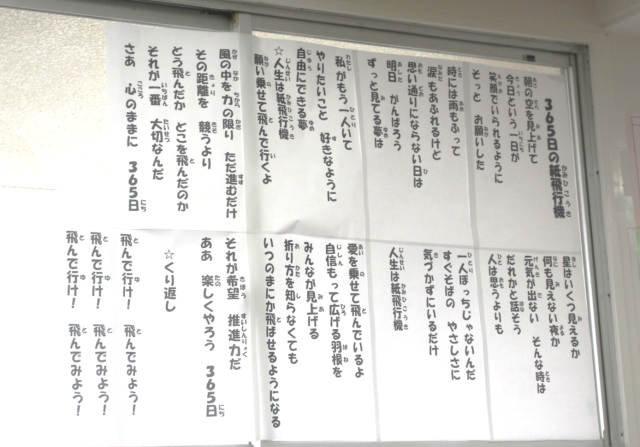 365日の紙飛行機
朝の空を見上げて
今日という一日が
笑顔でいられるように
そっと お願いした
時には雨もふって
涙もあふれるけど
思い通りにならない日は
明日 がんばろう
ずっと見てる夢は
私がもう一人いて
やりたいこと 好きなように
自由にできる夢
☆人生は紙飛行機
願い乗せて飛んで行くよ
風の中を力の限り ただ進むだけ
その距離を 競うより
どう飛んだか どこを飛んだのか
それが一番 大切なんだ
さあ 心のままに 365日
星はいくつ見えるか
何も見えない夜か
元気が出ない そんな時は
だれかと話そう
人は思うよりも
一人ぼっちじゃないんだ
すぐそばの やさしさに
気づかずにいるだけ
人生は紙飛行機
愛を乗せて飛んでいるよ
自信もって広げる羽根を
みんなが見上げる
折り方を知らなくても
いつのまにか飛ばせるようになる
それが希望 推進力だ
ああ 楽しくやろう 365日
☆くり返し
飛んで行け! 飛んでみよう!
飛んで行け! 飛んでみよう!
飛んで行け! 飛んでみよう!